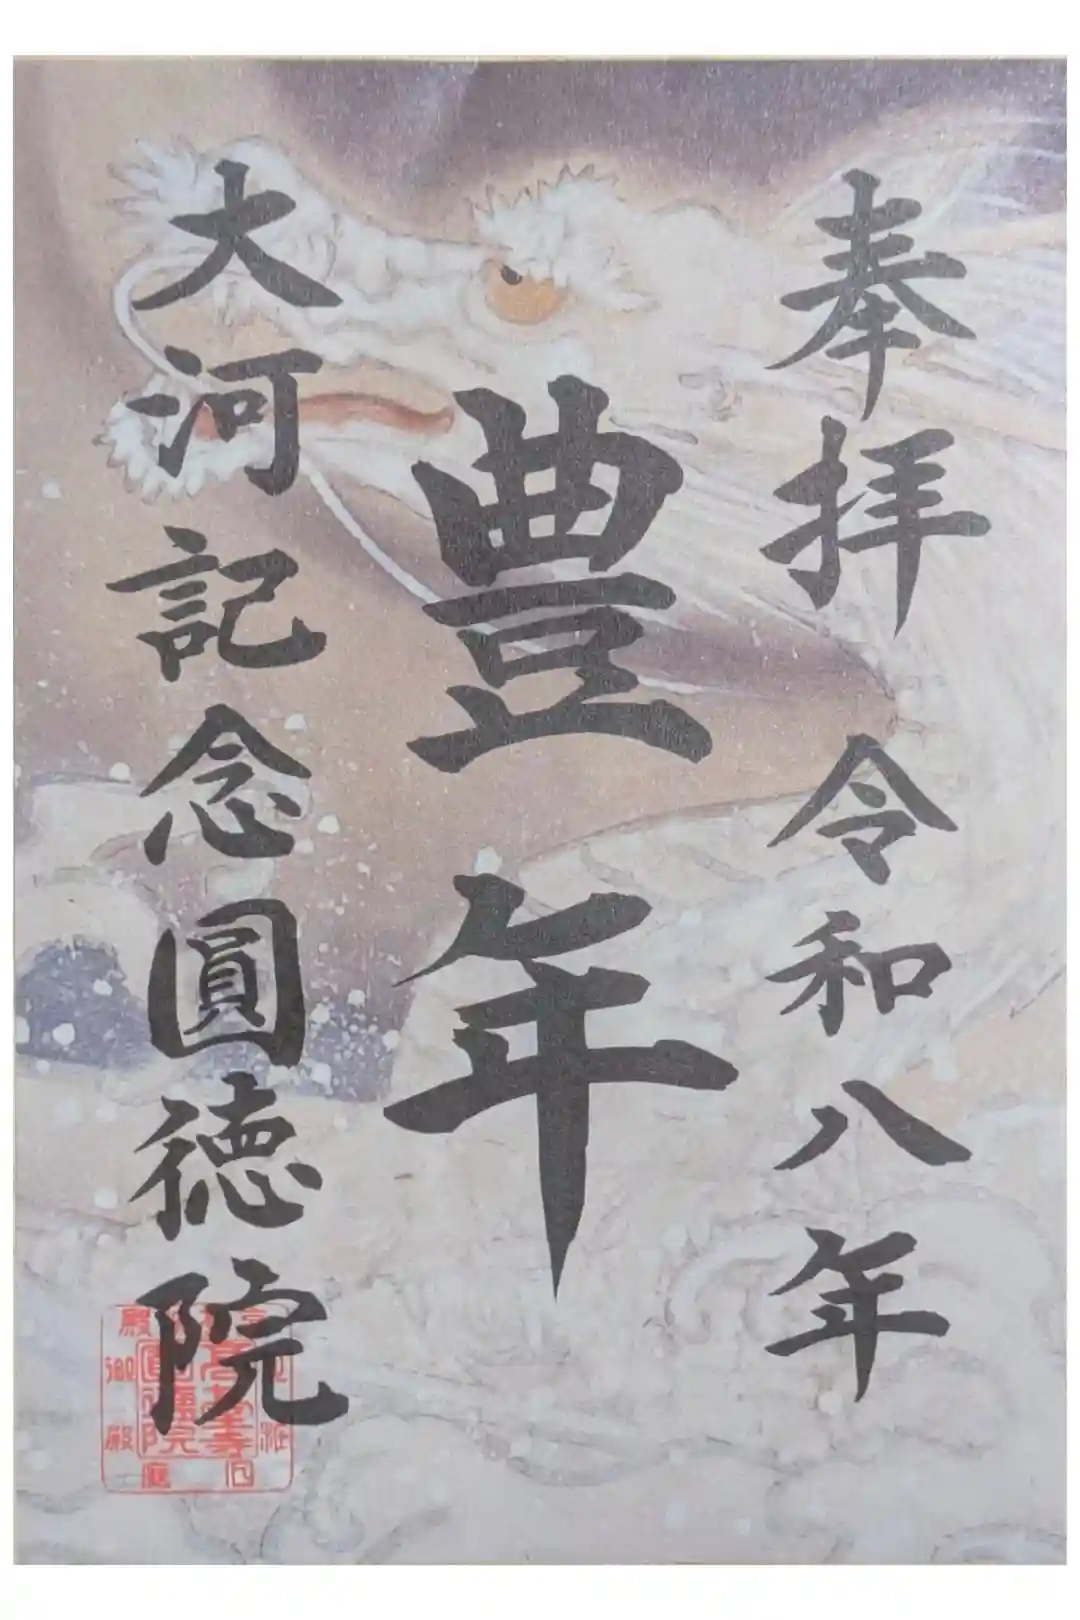 奉拝 令和八年
豊年
大河記念圓徳院